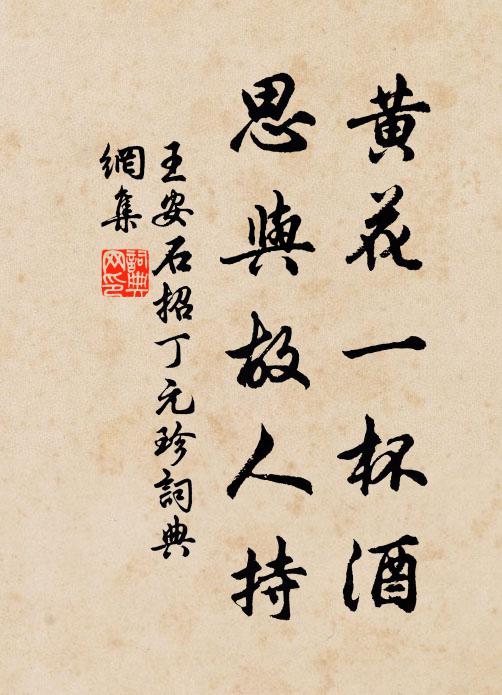 黃花一杯酒
思與故人持
王安石招丁元珍詞典
網集
詞典
网印